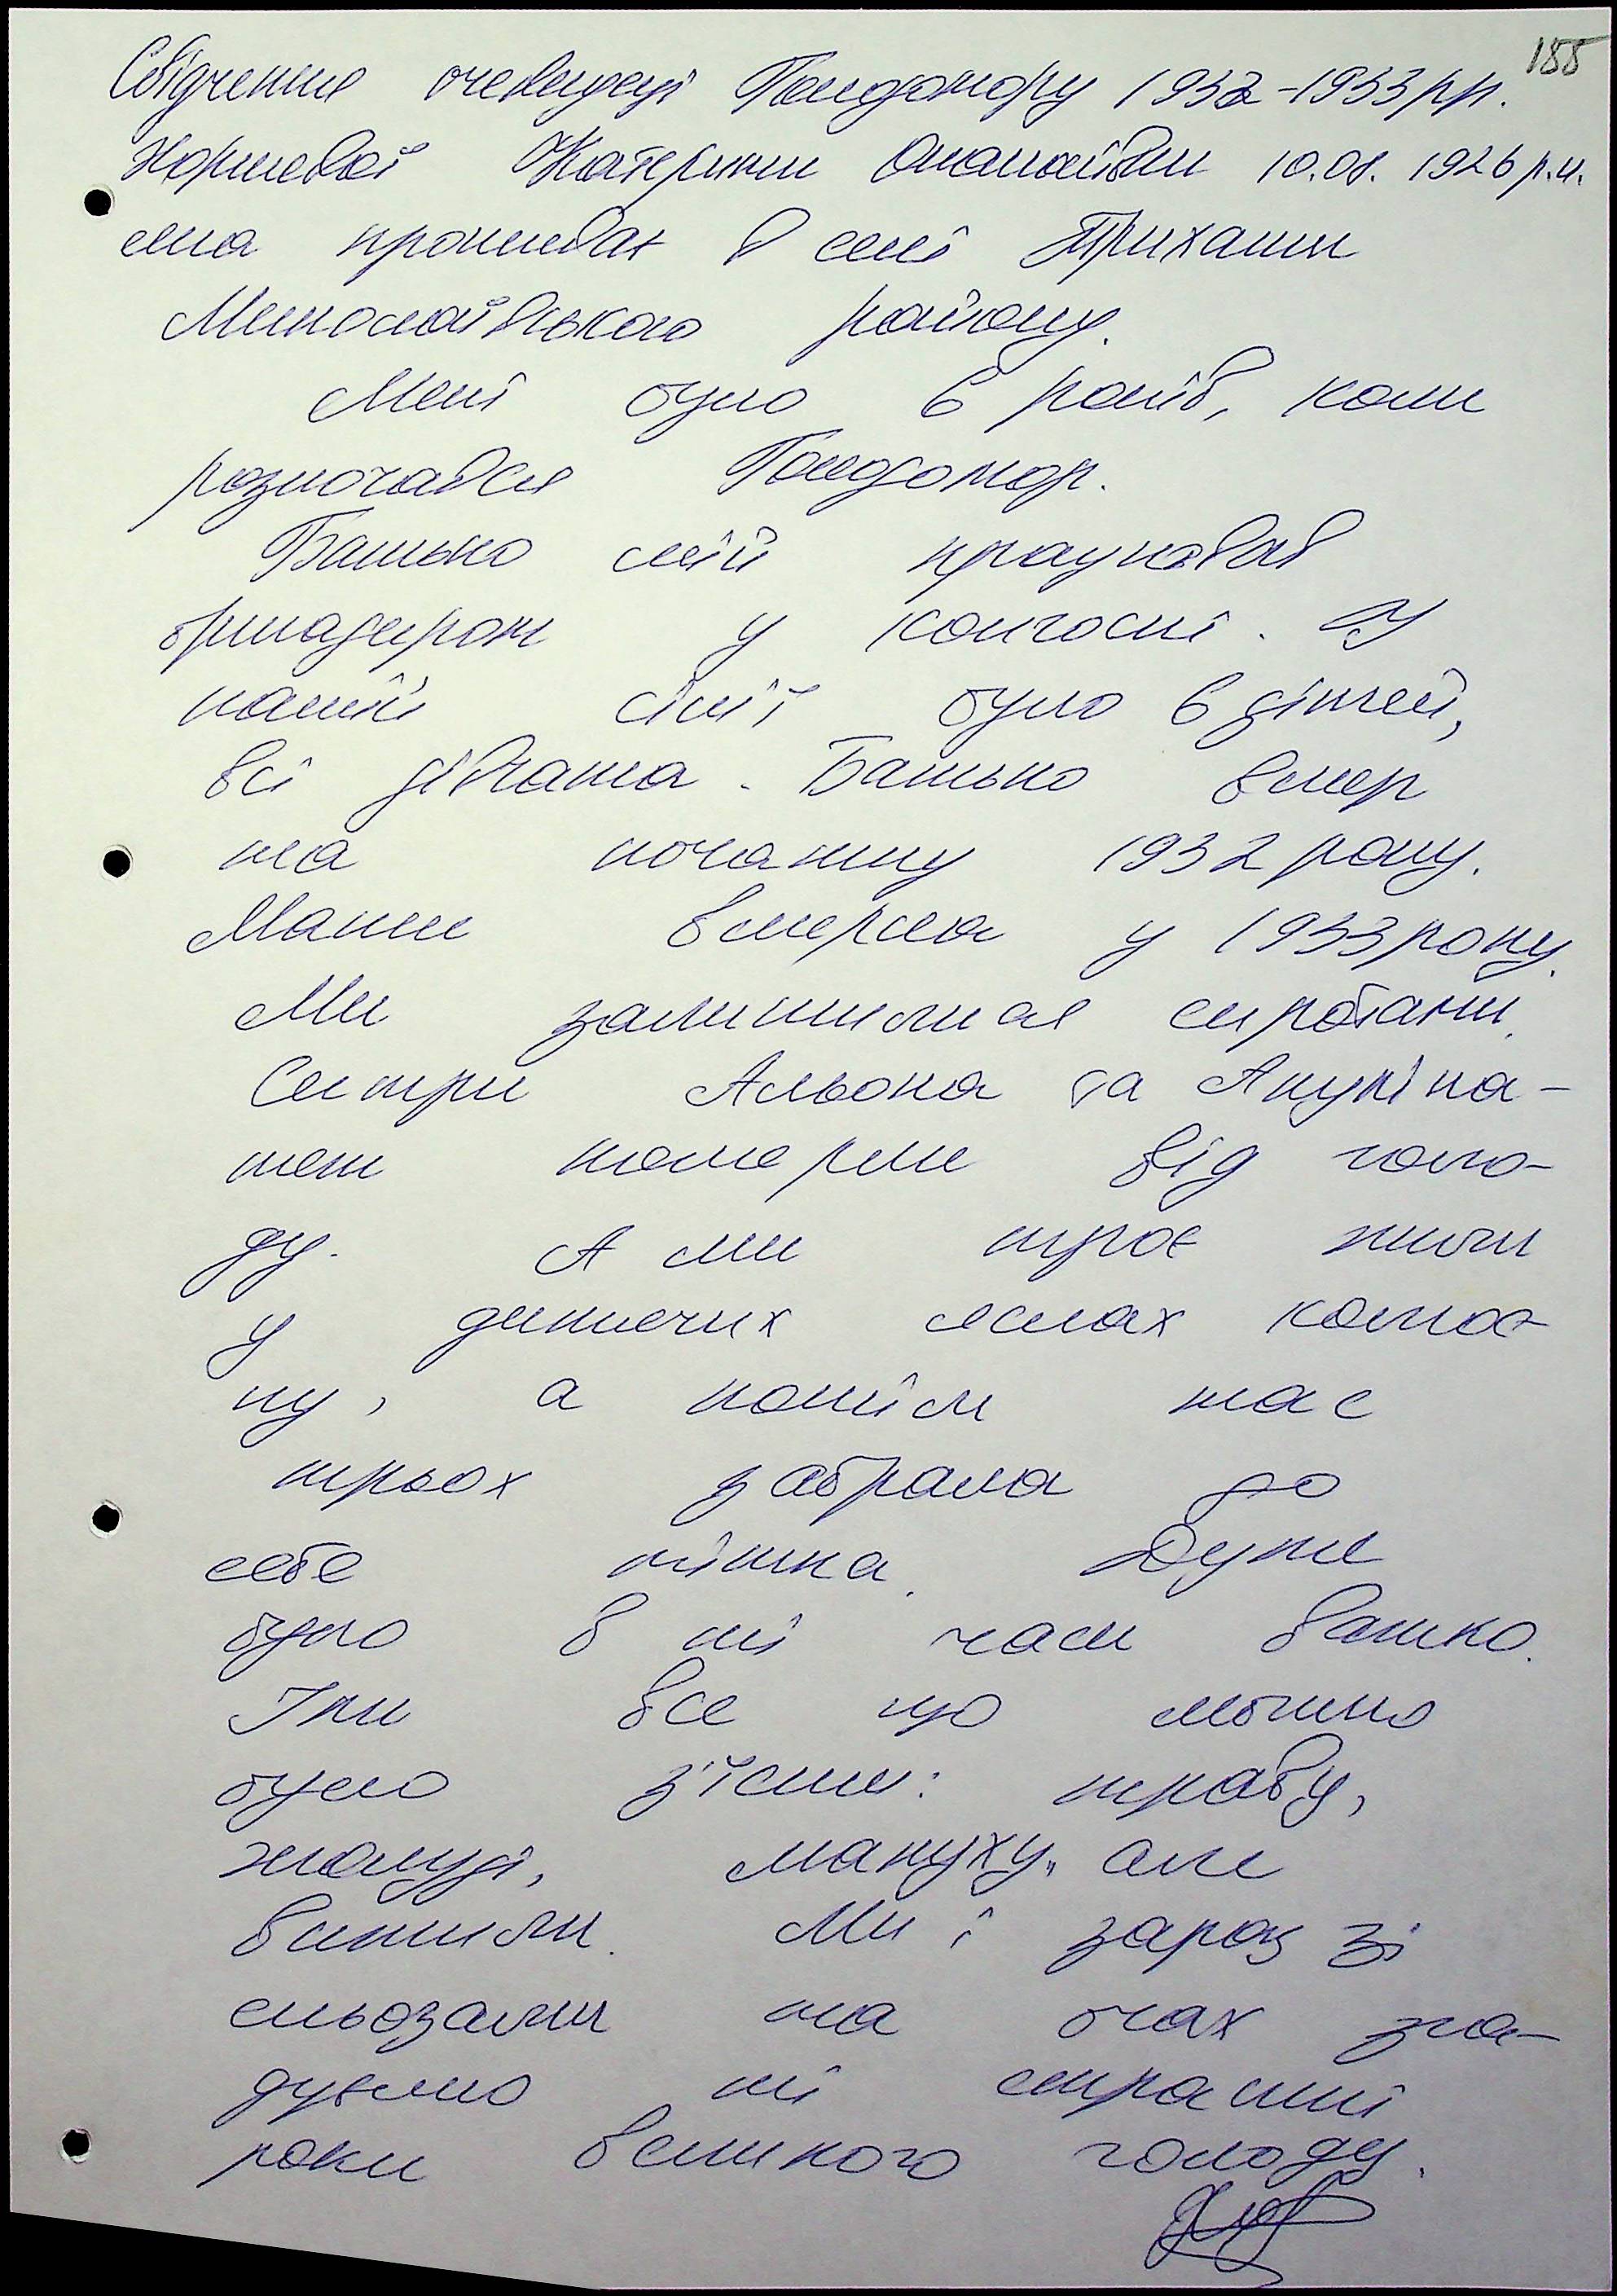 188
Свідчення очевидця Голодомору 1932-1933 рр.
Катерини Опанасівни 10.08. 1926 р.н.
яка проживає в селі Трихати
Миколаївського району.
Мені було 6 років, коли
розпочався Голодомор.
Батько мій працював
бригадиром у колгоспі. У
нашій сім'ї було 6 дітей,
всі дівчата. Батько вмер
на початку 1932 року.
Мати вмерла у 1933 року.
Ми залишилися сиротами.
Сестри Альона та Акуліна-
теж померли від голо-
ду. А ми троє жили
у дитячих яслах колгос-
пу, а потім нас
трьох забрала до
себе тітка. Дуже
було в ті часи важко.
Їли все що можна
було з'їсти: траву,
жолуді, макуху, але
вижили. Ми і зараз зі
сльозами на очах зга-
дуємо ті страшні
роки великого голоду.